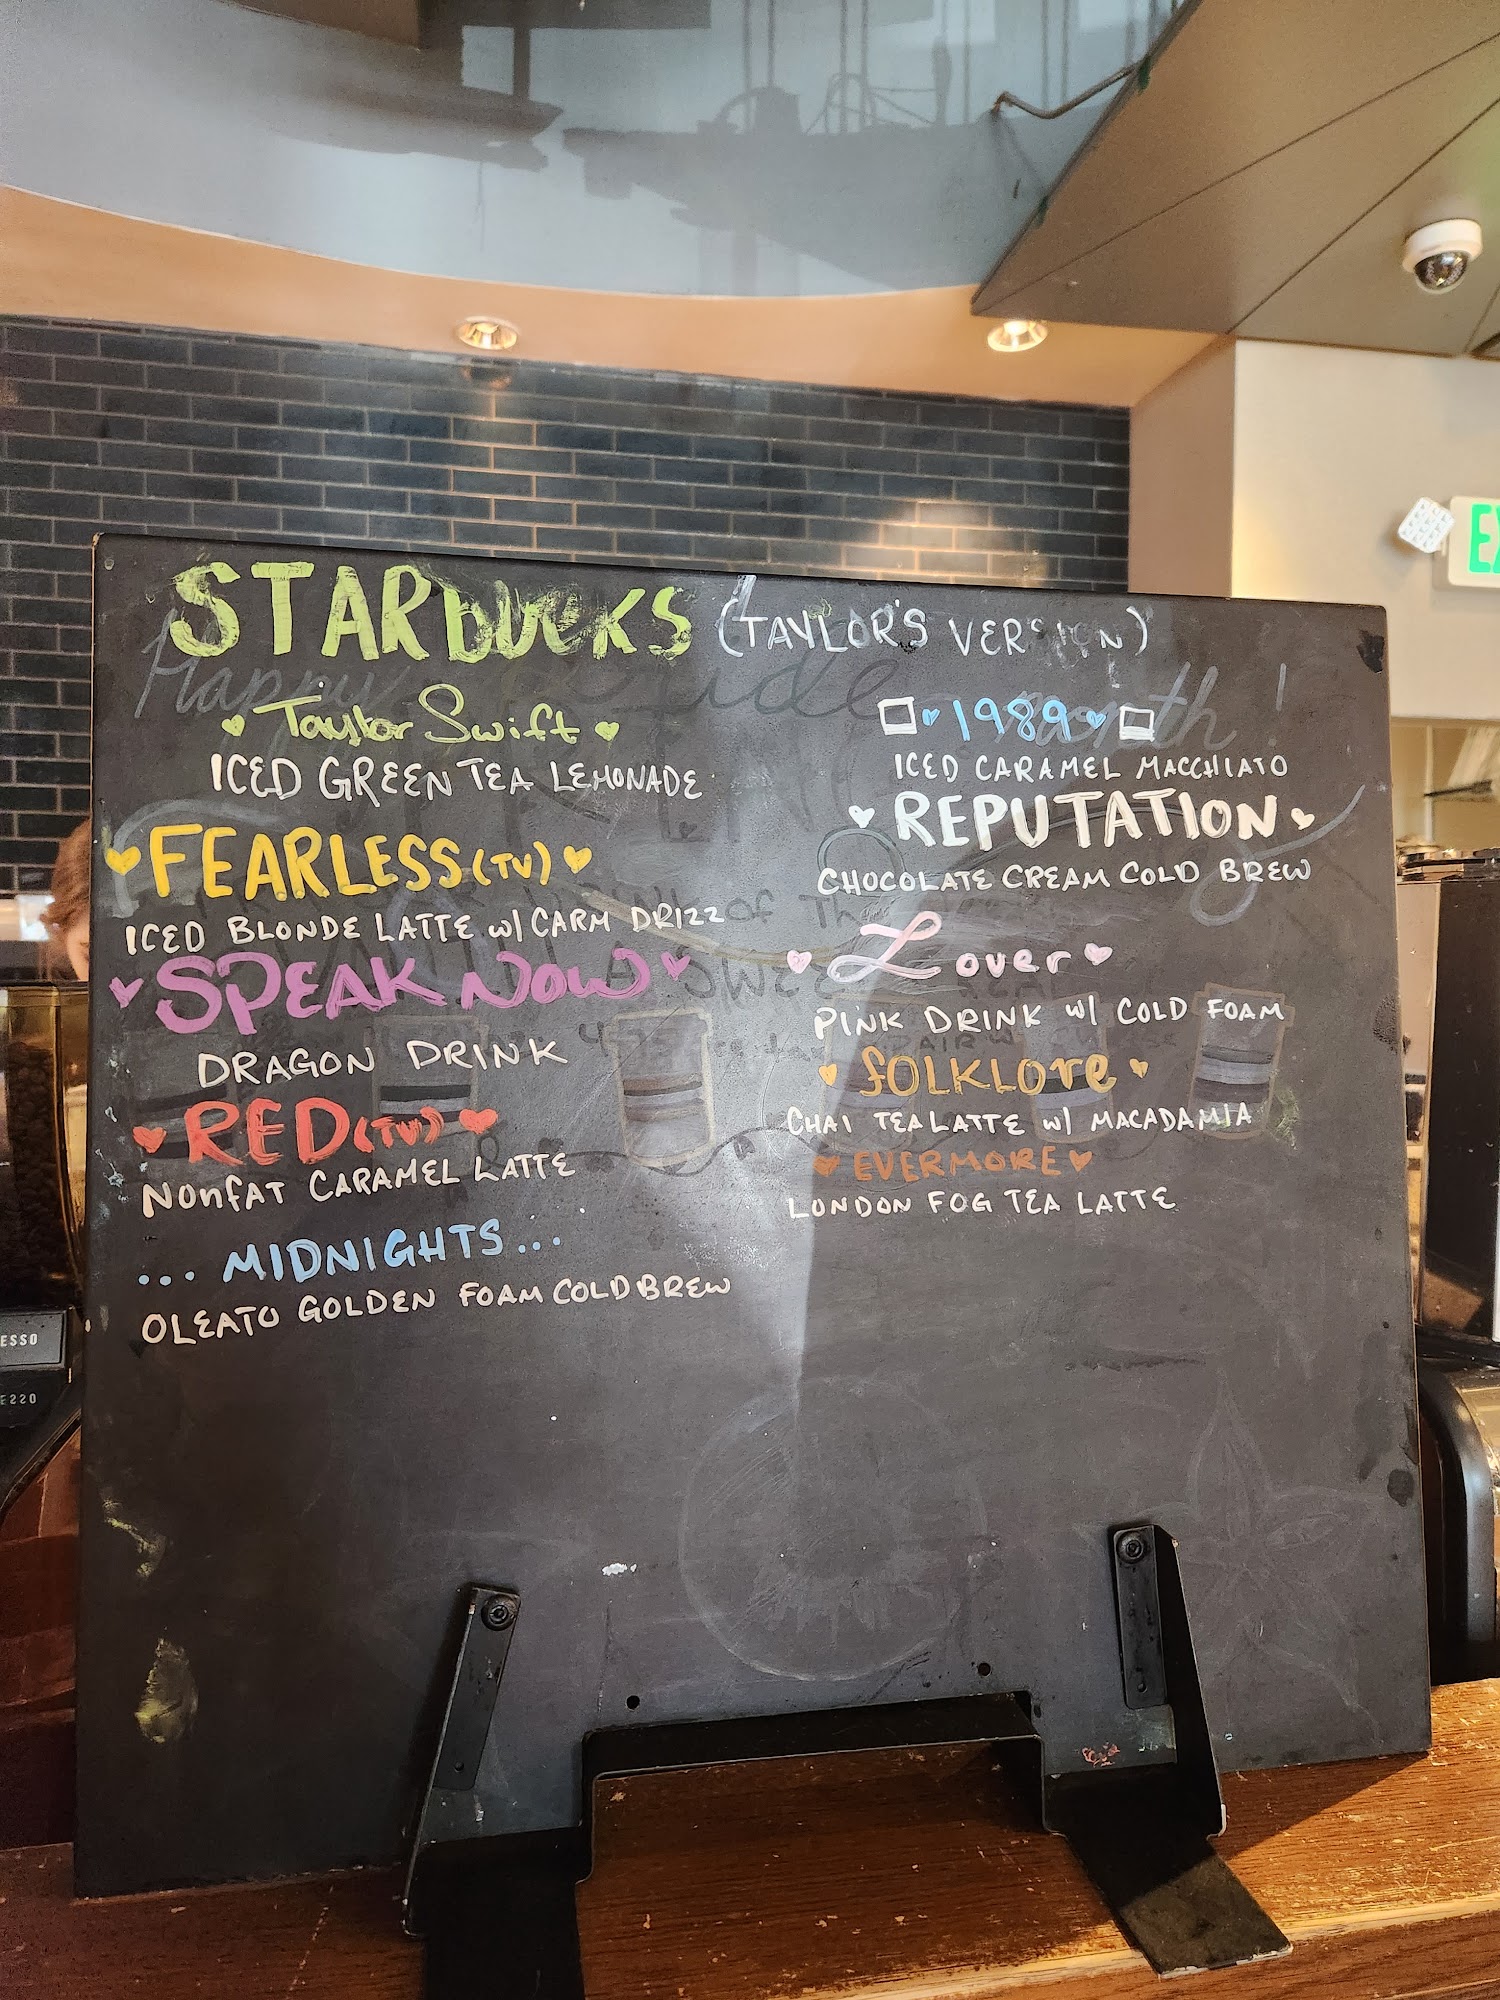 STARBUCKS (TAYLOR'S VERSION)
Taylor Swift
ICED GREEN TEA LEMONADE
FEARLESS (TV)
ICED BLONDE LATTE w/ CARM DRIZZ
SPEAK NOW
DRAGON DRINK
RED (TV)
NONFAT CARAMEL LATTE
... MIDNIGHTS ...
OLEATO GOLDEN FOAM COLD BREW
1989
ICED CARAMEL MACCHIATO
REPUTATION
CHOCOLATE CREAM COLD BREW
Lover
PINK DRINK w/ COLD FOAM
FOLKLORE
CHAI TEA LATTE w/ MACADAMIA
EVERMORE
LONDON FOG TEA LATTE
Happy Pride month!
EX
ESSO